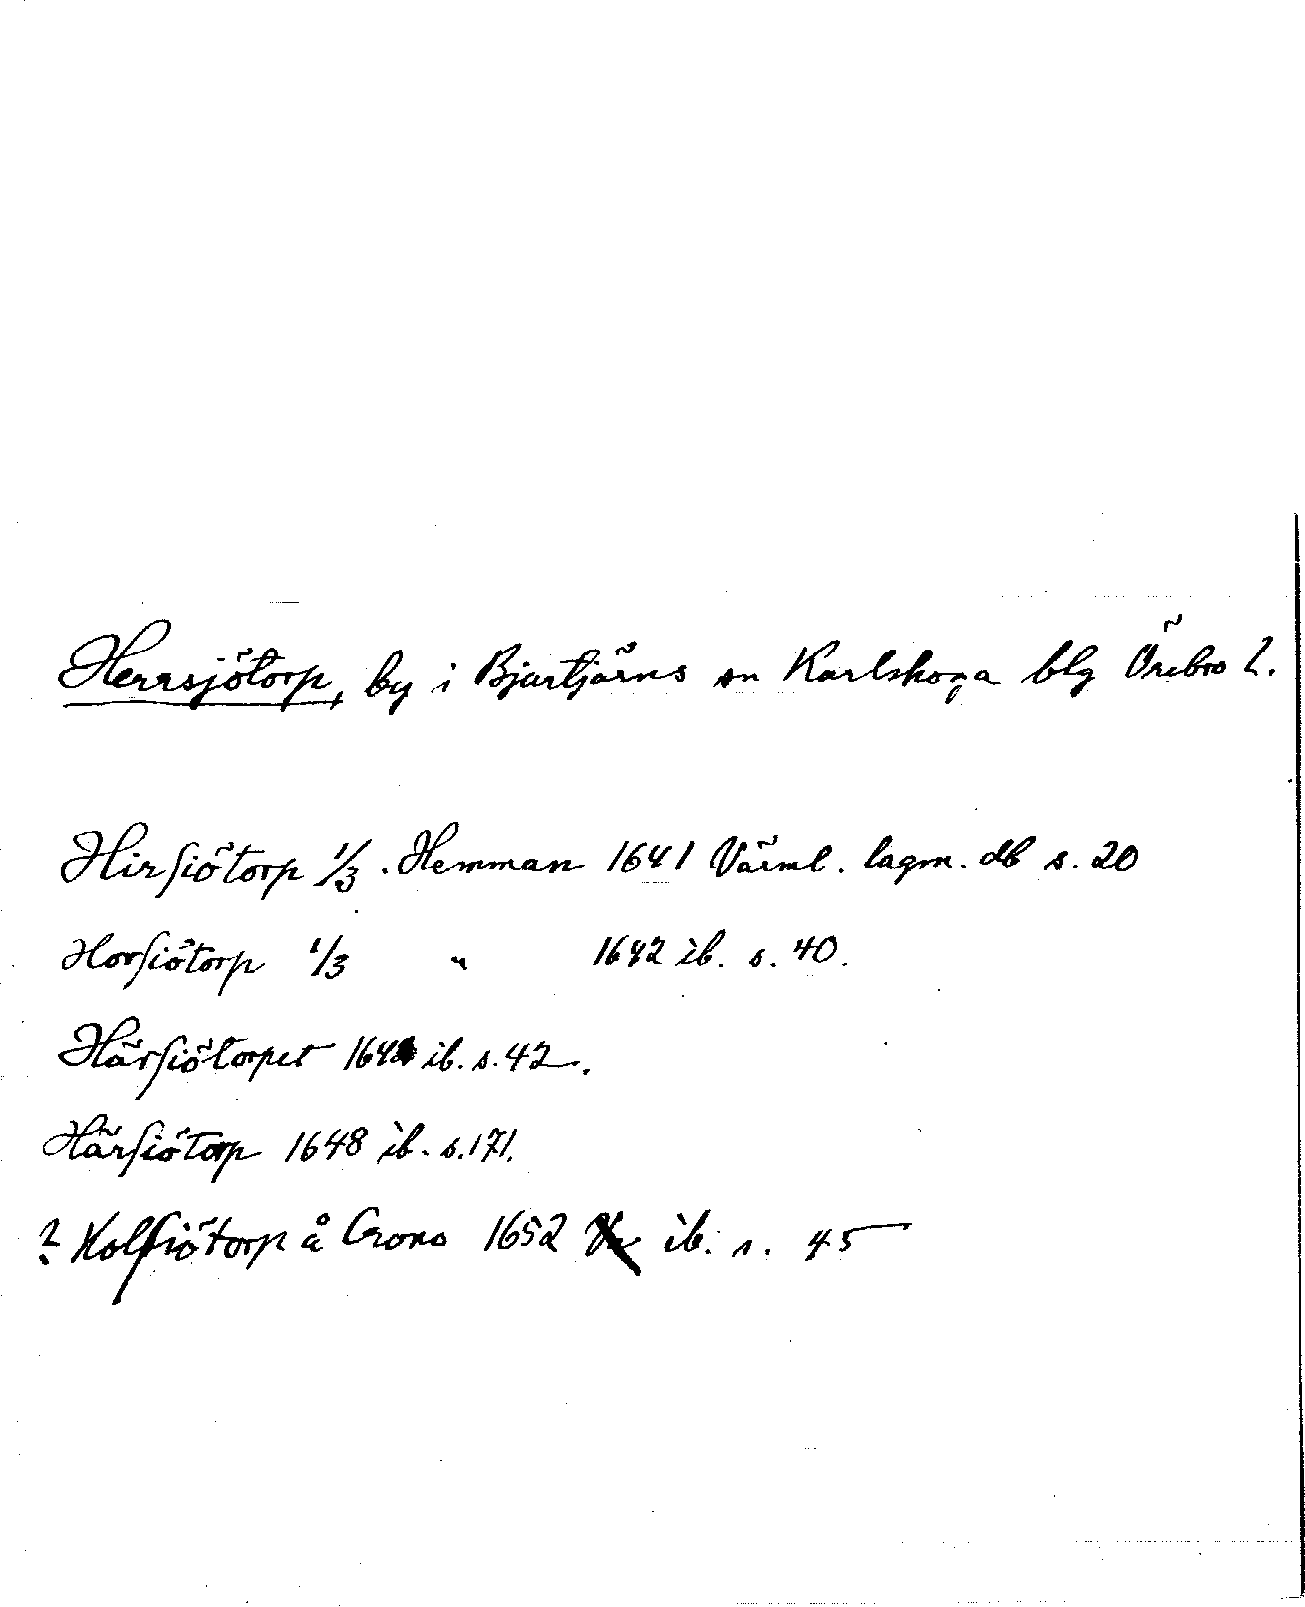 Herrsjötorp, by i Bjurtjärns sn Karlskoga blg Örebro l.
Hirsiötorp 1/3. Hemman 1641 Värml. lagm. db s. 20
Horsiötorp 1/3 " 1642 ib. s. 40.
Härsiötorpet ib. s. 42.
Härsiötorp 1648 ib. s. 171.
? Kolsiötorp å Crono 1652 ib. s. 45